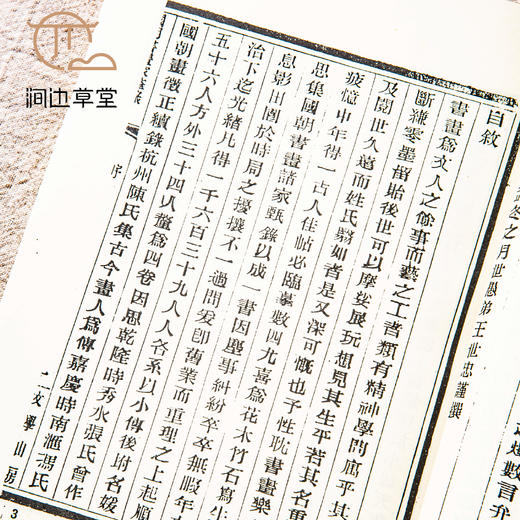 澗边草堂
冬之月世愚弟王世忠謹撰
數言弁
自敘
書畫爲文人之餘事而藝之工者類有精神學問寓乎其
斷縑零墨留貽後世可以摩娑展玩想見其生平若其名
及閱世久遠而姓氏翳如者是又深可慨也予性耽書畫樂
疲憶年得一古人佳帖必臨摹數四尤喜爲花木竹石寫
思集國朝書畫諸家甄錄以成一書因塵事糾紛卒卒無暇年
息影田園於時局之擾攘不一過問發卽舊業而重理之上起順
治下迄光緒凡得一千六百三十九人人各系以小傳後坿名媛
五十六人方外三十四人釐爲四卷因思乾隆時秀水張氏曾作
國朝畫徵正續錄杭州陳氏集古今畫人爲傳嘉慶時南滙馮氏
序
二文學山房
3